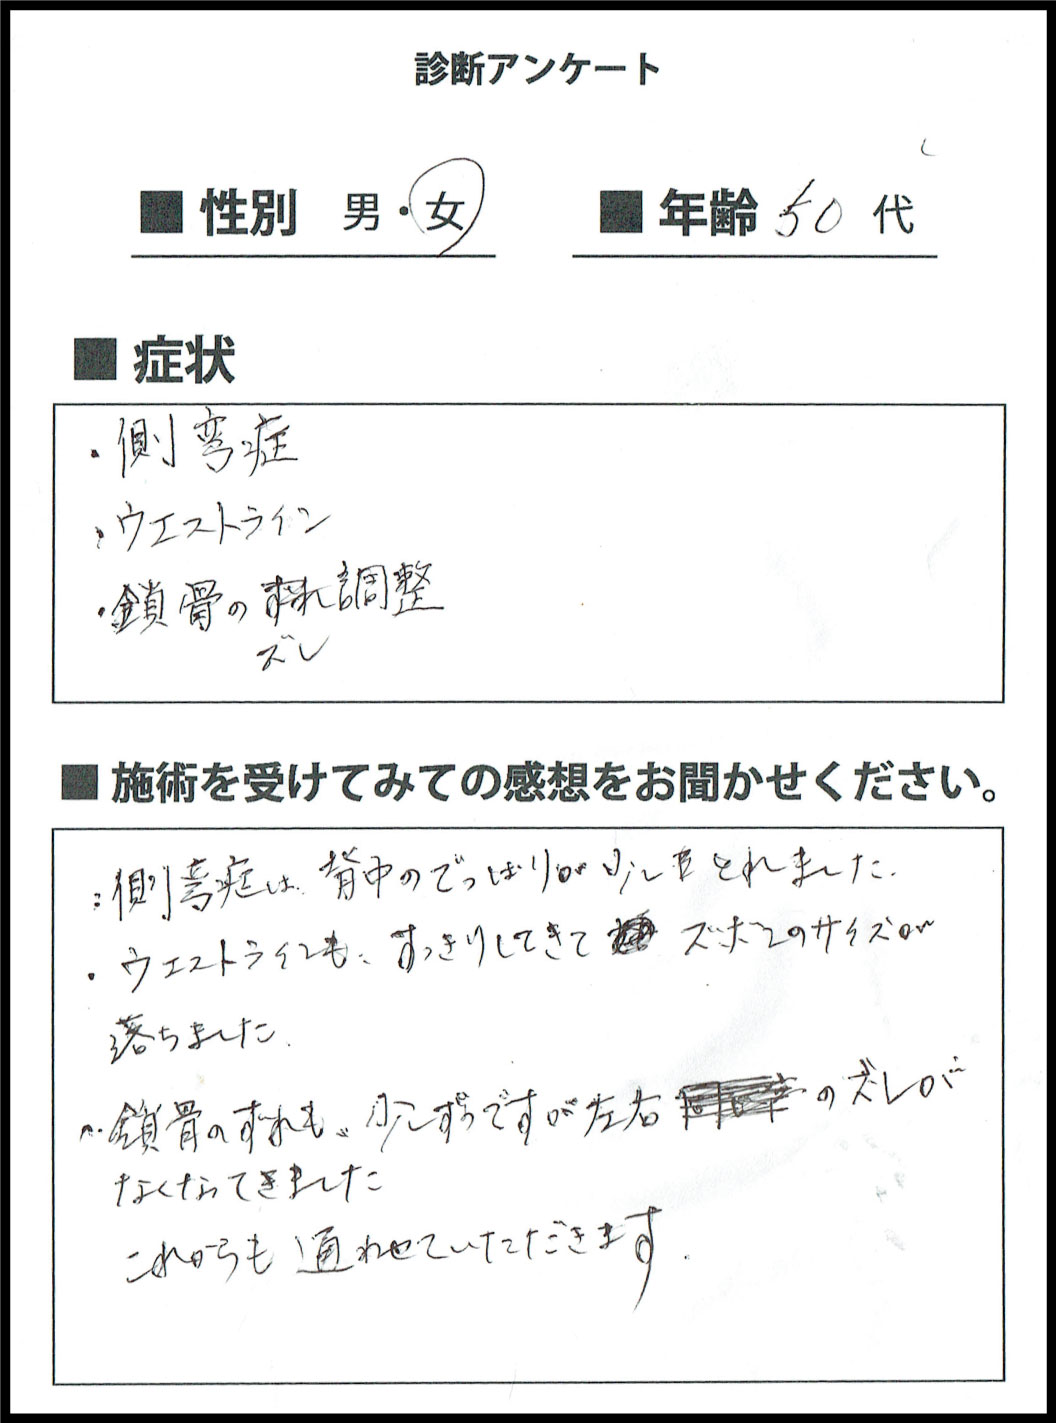 診断アンケート
■ 性別 男・女 ■ 年齢 50 代
■ 症状
・側弯症
・ウエストライン
・鎖骨の 調整
ズレ
■ 施術を受けてみての感想をお聞かせください。
・側弯症は、背中のでっぱりが少しとれました。
・ウエストラインも、すっきりしてきて ズボンのサイズが
落ちました。
・鎖骨のずれも、少しずつですが左右 のズレが
なくなってきました
これからも通わせていただきます.